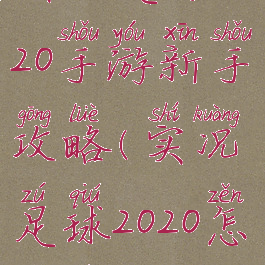 shǒu yóu xīn shǒu
20手游新手
gōng lüè shí kuàng
攻略(实况
zú qiú zěn
足球2020怎